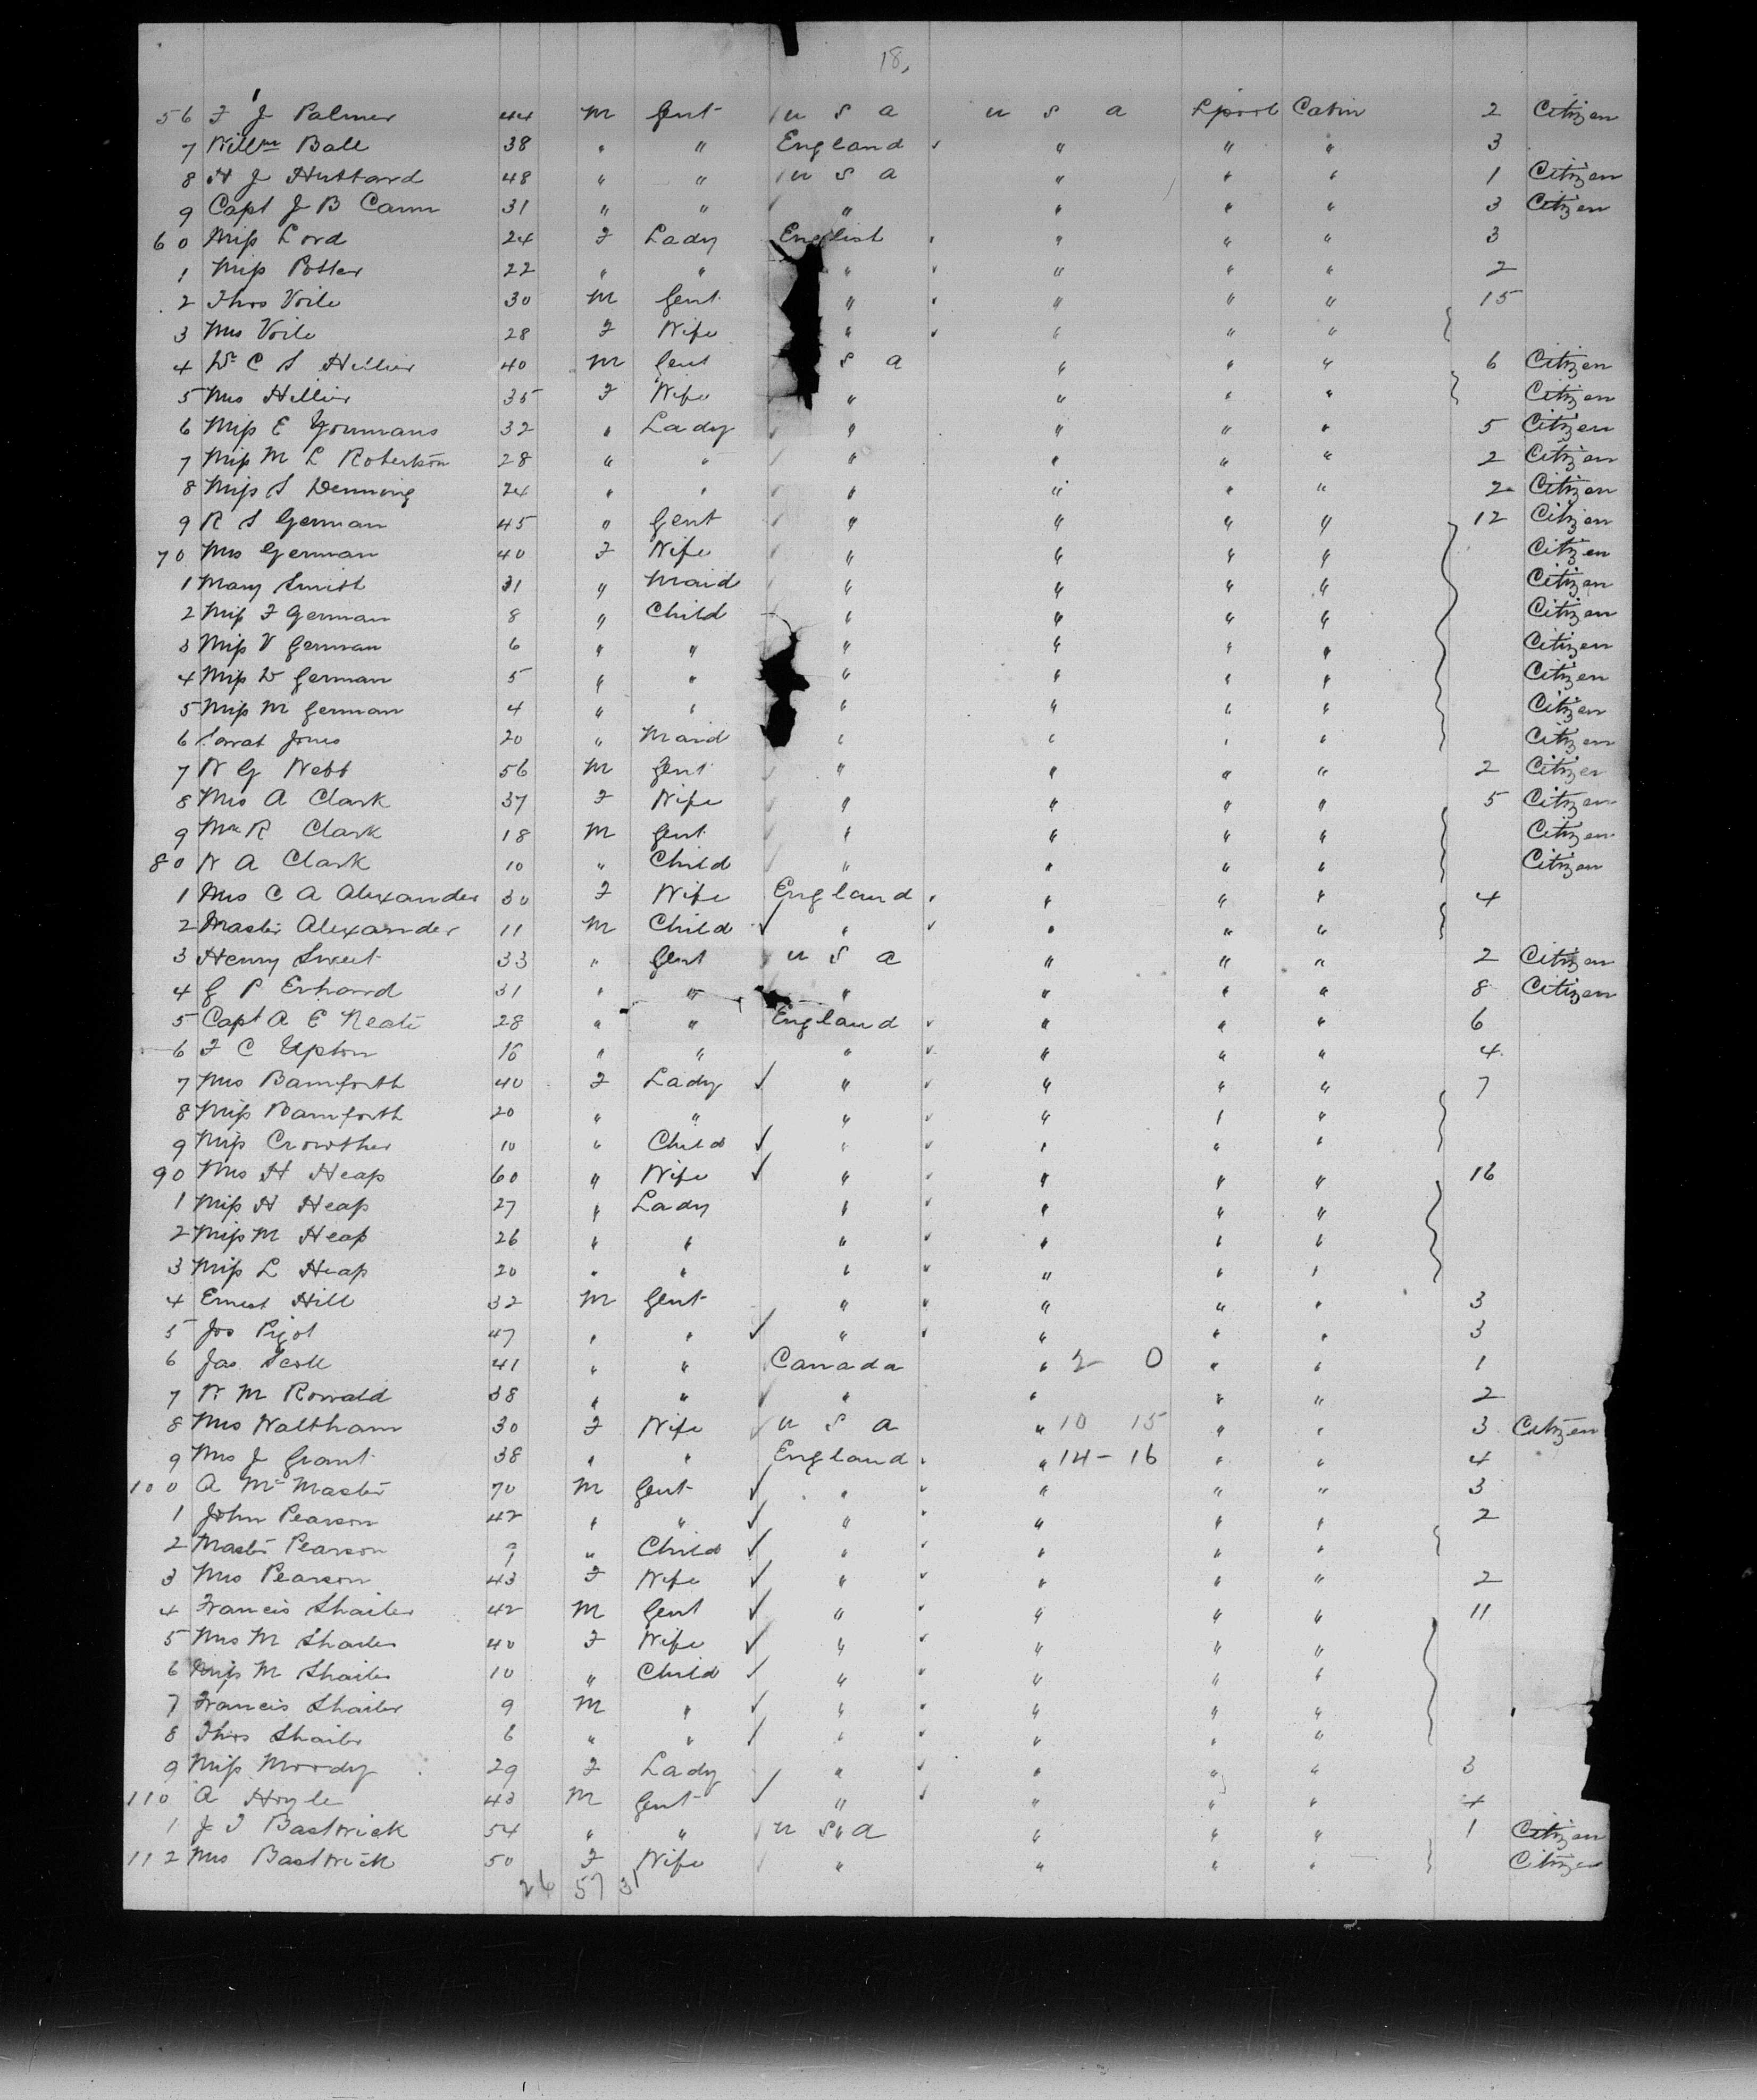 18.
56 F J Palmer 44 M Gent U S A U S A Lpool Cabin 2 Citizen
7 Willm Ball 38 " " England " " " 3
8 H J Hubbard 48 " " U S A " " " 1 Citizen
9 Capt J B Cann 31 " " " " " " 3 Citizen
60 Miss Lord 24 F Lady English " " " 3
1 Miss Potter 22 " " " " " " 2
2 Thos Voile 30 M Gent " " " " 15
3 Mrs Voile 28 F Wife " " " "
4 Dr C S Hillier 40 M Gent S A " " " 6 Citizen
5 Mrs Hillier 35 F Wife " " " " Citizen
6 Miss E Youmans 32 " Lady " " " " 5 Citizen
7 Miss M L Robertson 28 " " " " " " 2 Citizen
8 Miss S Denning 24 " " " " " " 2 Citizen
9 R S German 45 " Gent " " " " 12 Citizen
70 Mrs German 40 F Wife " " " " Citizen
1 Mary Smith 31 " Maid " " " " Citizen
2 Miss F German 8 " Child " " " " Citizen
3 Miss V German 6 " " " " " " Citizen
4 Miss D German 5 " " " " " " Citizen
5 Miss M German 4 " " " " " " Citizen
6 Sarah Jones 20 " Maid " " " " Citizen
7 W G Webb 56 M Gent " " " " 2 Citizen
8 Mrs A Clark 37 F Wife " " " " 5 Citizen
9 Mr R Clark 18 M Gent " " " " Citizen
80 W A Clark 10 " Child " " " " Citizen
1 Mrs C A Alexander 30 F Wife England " " " 4
2 Master Alexander 11 M Child " " " "
3 Henry Sweet 33 " Gent U S A " " " 2 Citizen
4 G P Erhard 31 " " " " " " 8 Citizen
5 Capt A E Neate 28 " " England " " " 6
6 F C Upton 16 " " " " " " 4
7 Mrs Bamforth 40 F Lady " " " " 7
8 Miss Bamforth 20 " " " " " "
9 Miss Crowther 10 " Child " " " "
90 Mrs H Heap 60 " Wife " " " " 16
1 Miss H Heap 27 " Lady " " " "
2 Miss M Heap 26 " " " " " "
3 Miss L Heap 20 " " " " " "
4 Ernest Hill 32 M Gent " " " " 3
5 Jos Pigot 47 " " " " " " 3
6 Jas Scott 41 " " Canada " 2 0 " " 1
7 W M Rowald 38 " " " " " " 2
8 Mrs Waltham 30 F Wife U S A " 10 15 " " 3 Citizen
9 Mrs J Grant 38 " " England " 14-16 " " 4
100 A McMaster 70 M Gent " " " " 3
1 John Pearson 42 " " " " " " 2
2 Master Pearson 9 " Child " " " "
3 Mrs Pearson 43 F Wife " " " " 2
4 Francis Shailer 42 M Gent " " " " 11
5 Mrs M Shailer 40 F Wife " " " "
6 Miss M Shailer 10 " Child " " " "
7 Francis Shailer 9 M " " " " "
8 Thos Shailer 6 " " " " " "
9 Miss Moody 29 F Lady " " " " 3
110 A Hoyle 43 M Gent " " " " 4
1 J T Bastwick 54 " " U S A " " " 1 Citizen
112 Mrs Bastwick 50 F Wife " " " " Citizen
26 57 31